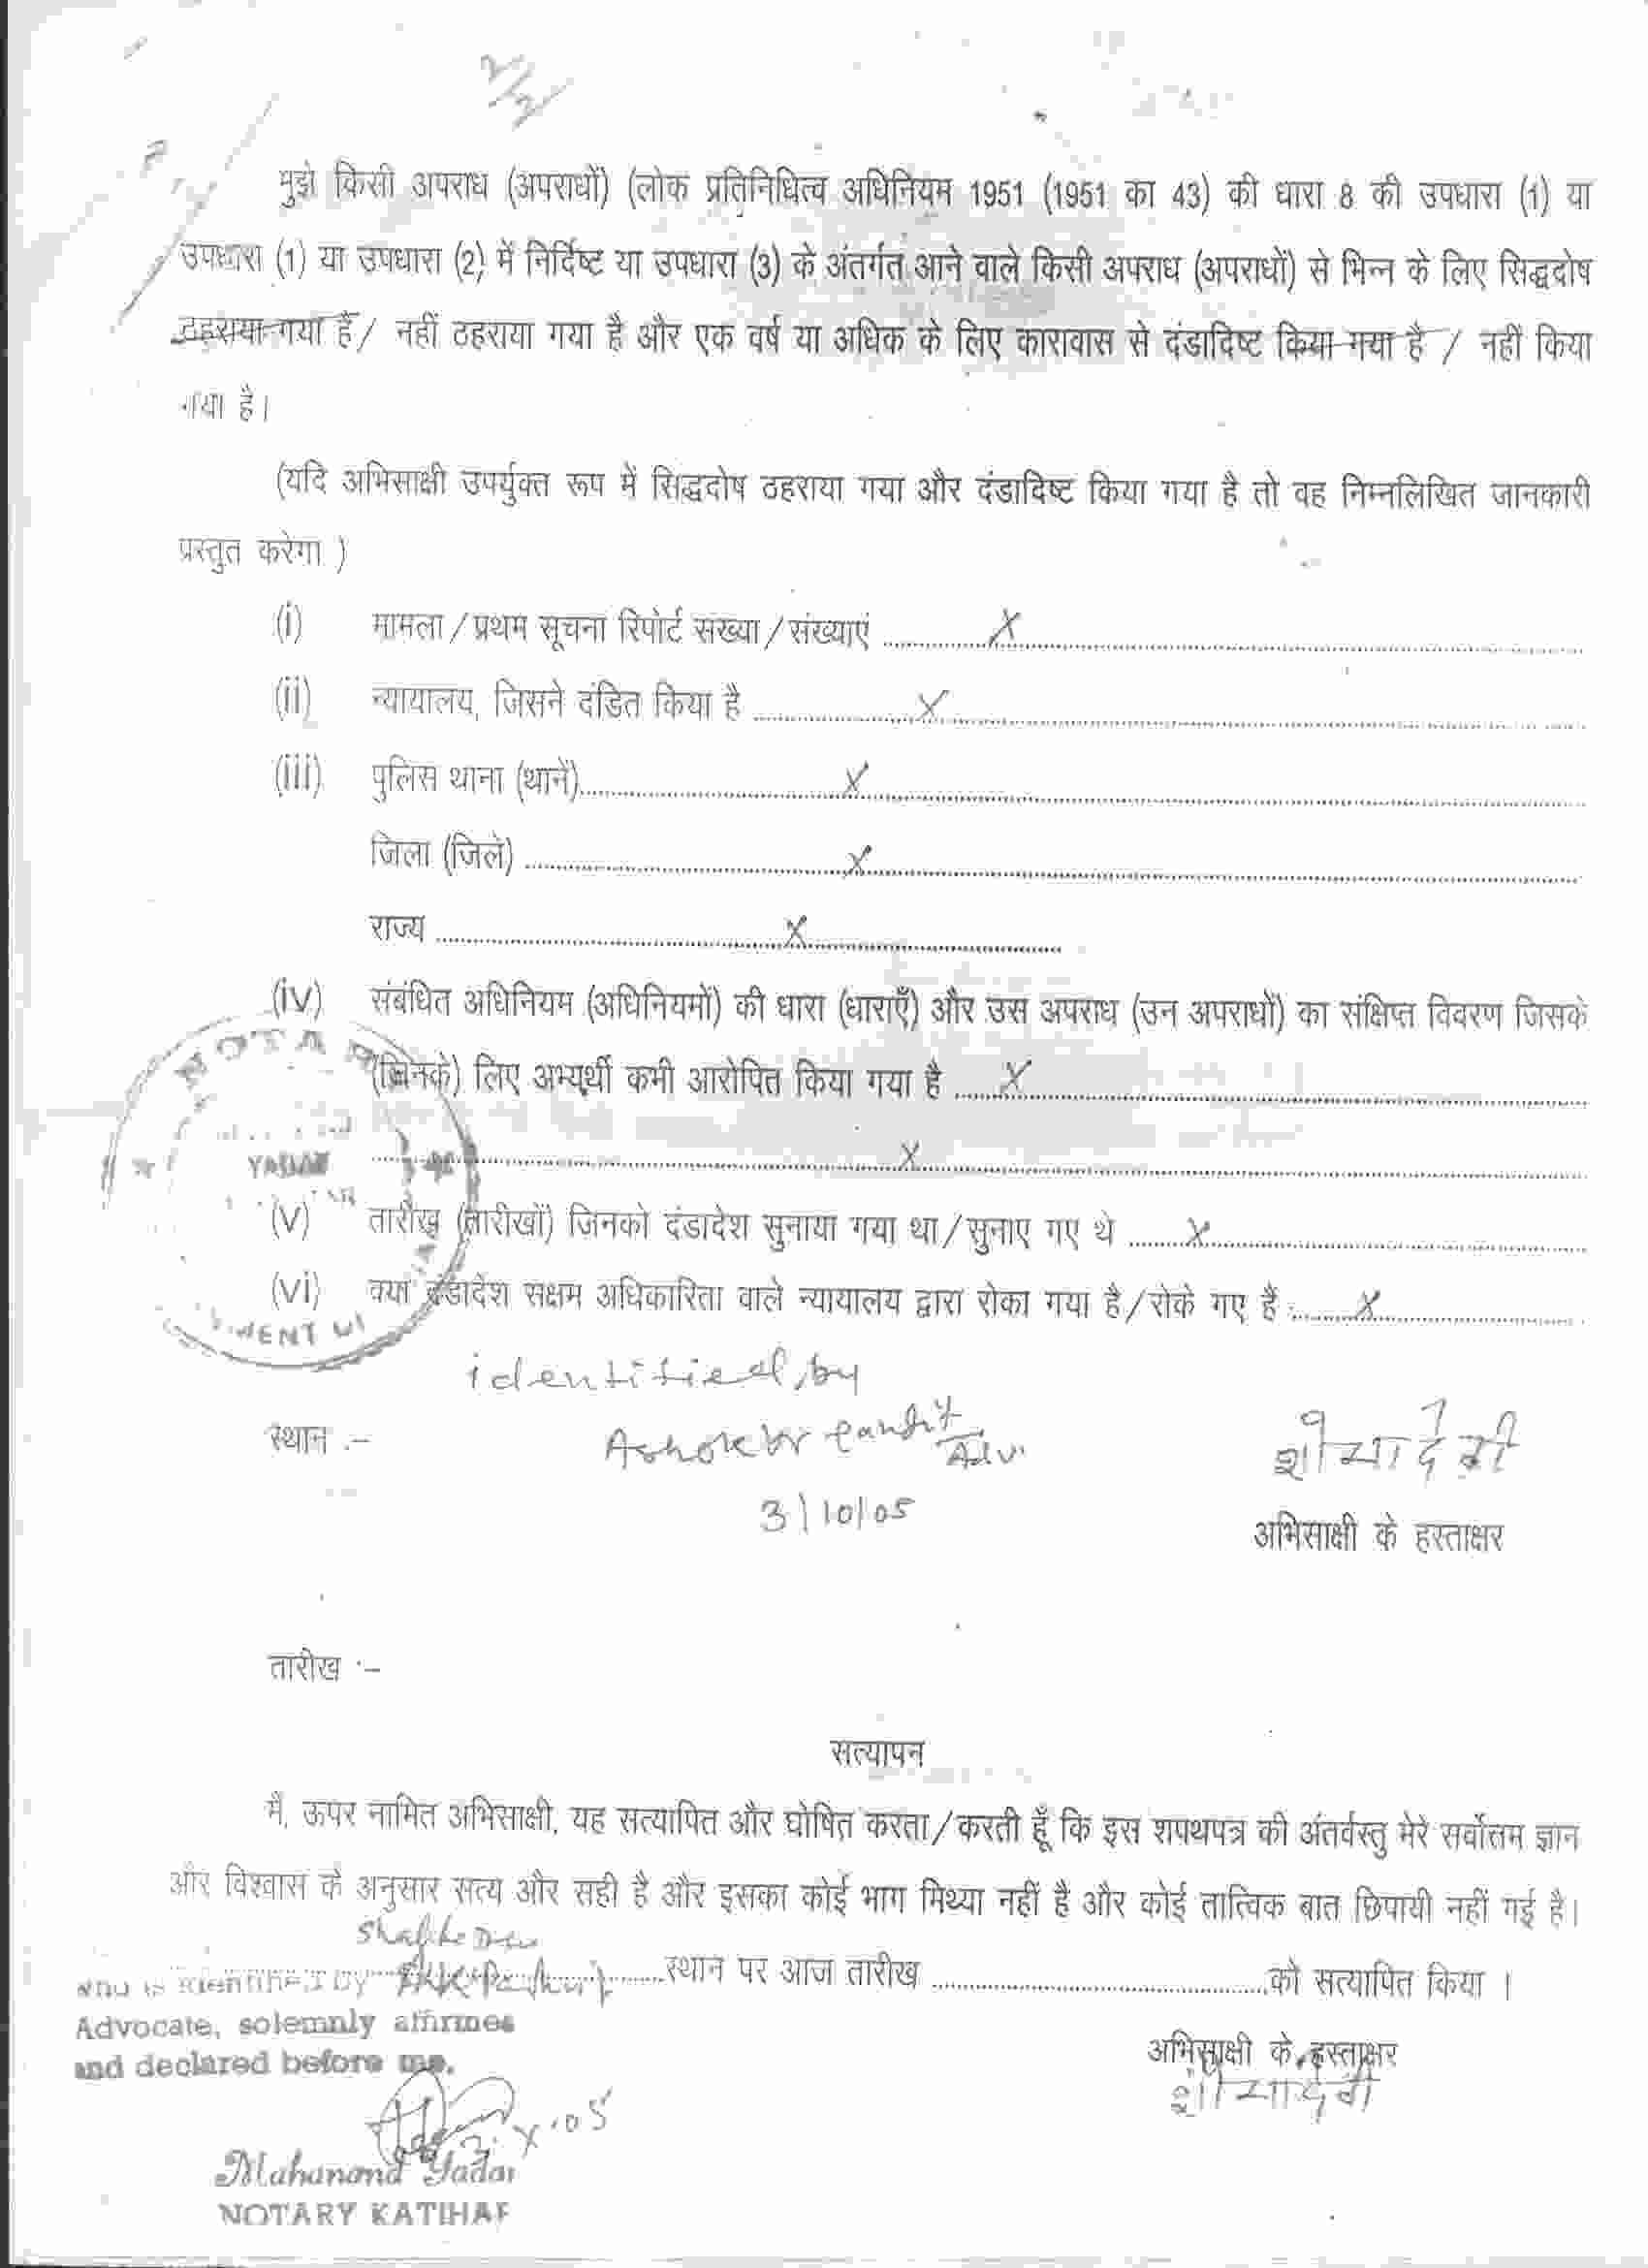 2/2
मुझे किसी अपराध (अपराधों) (लोक प्रतिनिधित्व अधिनियम 1951 (1951 का 43) की धारा 8 की उपधारा (1) या
उपधारा (1) या उपधारा (2) में निर्दिष्ट या उपधारा (3) के अंतर्गत आने वाले किसी अपराध (अपराधों) से भिन्न के लिए सिद्धदोष
ठहराया गया है / नहीं ठहराया गया है और एक वर्ष या अधिक के लिए कारावास से दंडादिष्ट किया गया है / नहीं किया
गया है।
(यदि अभिसाक्षी उपर्युक्त रूप में सिद्धदोष ठहराया गया और दंडादिष्ट किया गया है तो वह निम्नलिखित जानकारी
प्रस्तुत करेगा )
(i) मामला/प्रथम सूचना रिपोर्ट संख्या/संख्याएं ........ X ........
(ii) न्यायालय, जिसने दंडित किया है ........ X ........
(iii) पुलिस थाना (थानें) ........ X ........
जिला (जिले) ........ X ........
राज्य ........ X ........
(iv) संबंधित अधिनियम (अधिनियमों) की धारा (धाराएँ) और उस अपराध (उन अपराधों) का संक्षिप्त विवरण जिसके
(जिनके) लिए अभ्यर्थी कभी आरोपित किया गया है ........ X ........
........ X ........
NOTAR
YADAV
(v) तारीख (तारीखों) जिनको दंडादेश सुनाया गया था/सुनाए गए थे ........ X ........
(vi) क्या दंडादेश सक्षम अधिकारिता वाले न्यायालय द्वारा रोका गया है/रोके गए हैं :........ X ........
identified by
स्थान :- Ashok Kr Pandit Adv. शोभा देवी
3/10/05
अभिसाक्षी के हस्ताक्षर
तारीख :-
सत्यापन
मैं, ऊपर नामित अभिसाक्षी, यह सत्यापित और घोषित करता/करती हूँ कि इस शपथपत्र की अंतर्वस्तु मेरे सर्वोत्तम ज्ञान
और विश्वास के अनुसार सत्य और सही है और इसका कोई भाग मिथ्या नहीं है और कोई तात्विक बात छिपायी नहीं गई है।
........ स्थान पर आज तारीख ........ को सत्यापित किया ।
who is identified by
Advocate, solemnly affirmes
and declared before me.
अभिसाक्षी के हस्ताक्षर
शोभा देवी
3.X.05
Mahanand Yadav
NOTARY KATIHAR